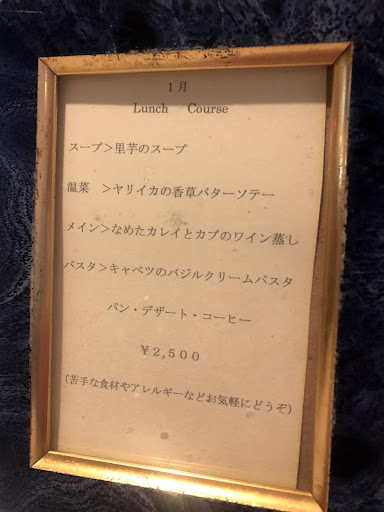 1月
Lunch Course
スープ＞里芋のスープ
温菜　＞ヤリイカの香草バターソテー
メイン＞なめたカレイとカブのワイン蒸し
パスタ＞キャベツのバジルクリームパスタ
パン・デザート・コーヒー
￥2,500
(苦手な食材やアレルギーなどお気軽にどうぞ)